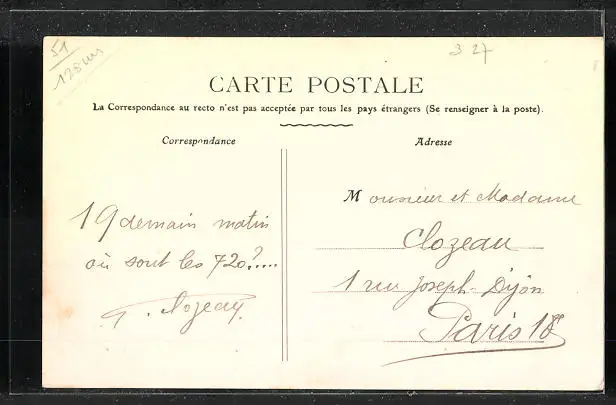 51
128um
3 27
CARTE POSTALE
La Correspondance au recto n'est pas acceptée par tous les pays étrangers (Se renseigner à la poste).
Correspondance
Adresse
19 demain matin
où sont les 720?....
G. Clozeau
Monsieur et Madame
Clozeau
1 rue Joseph-Dijon
Paris 18e